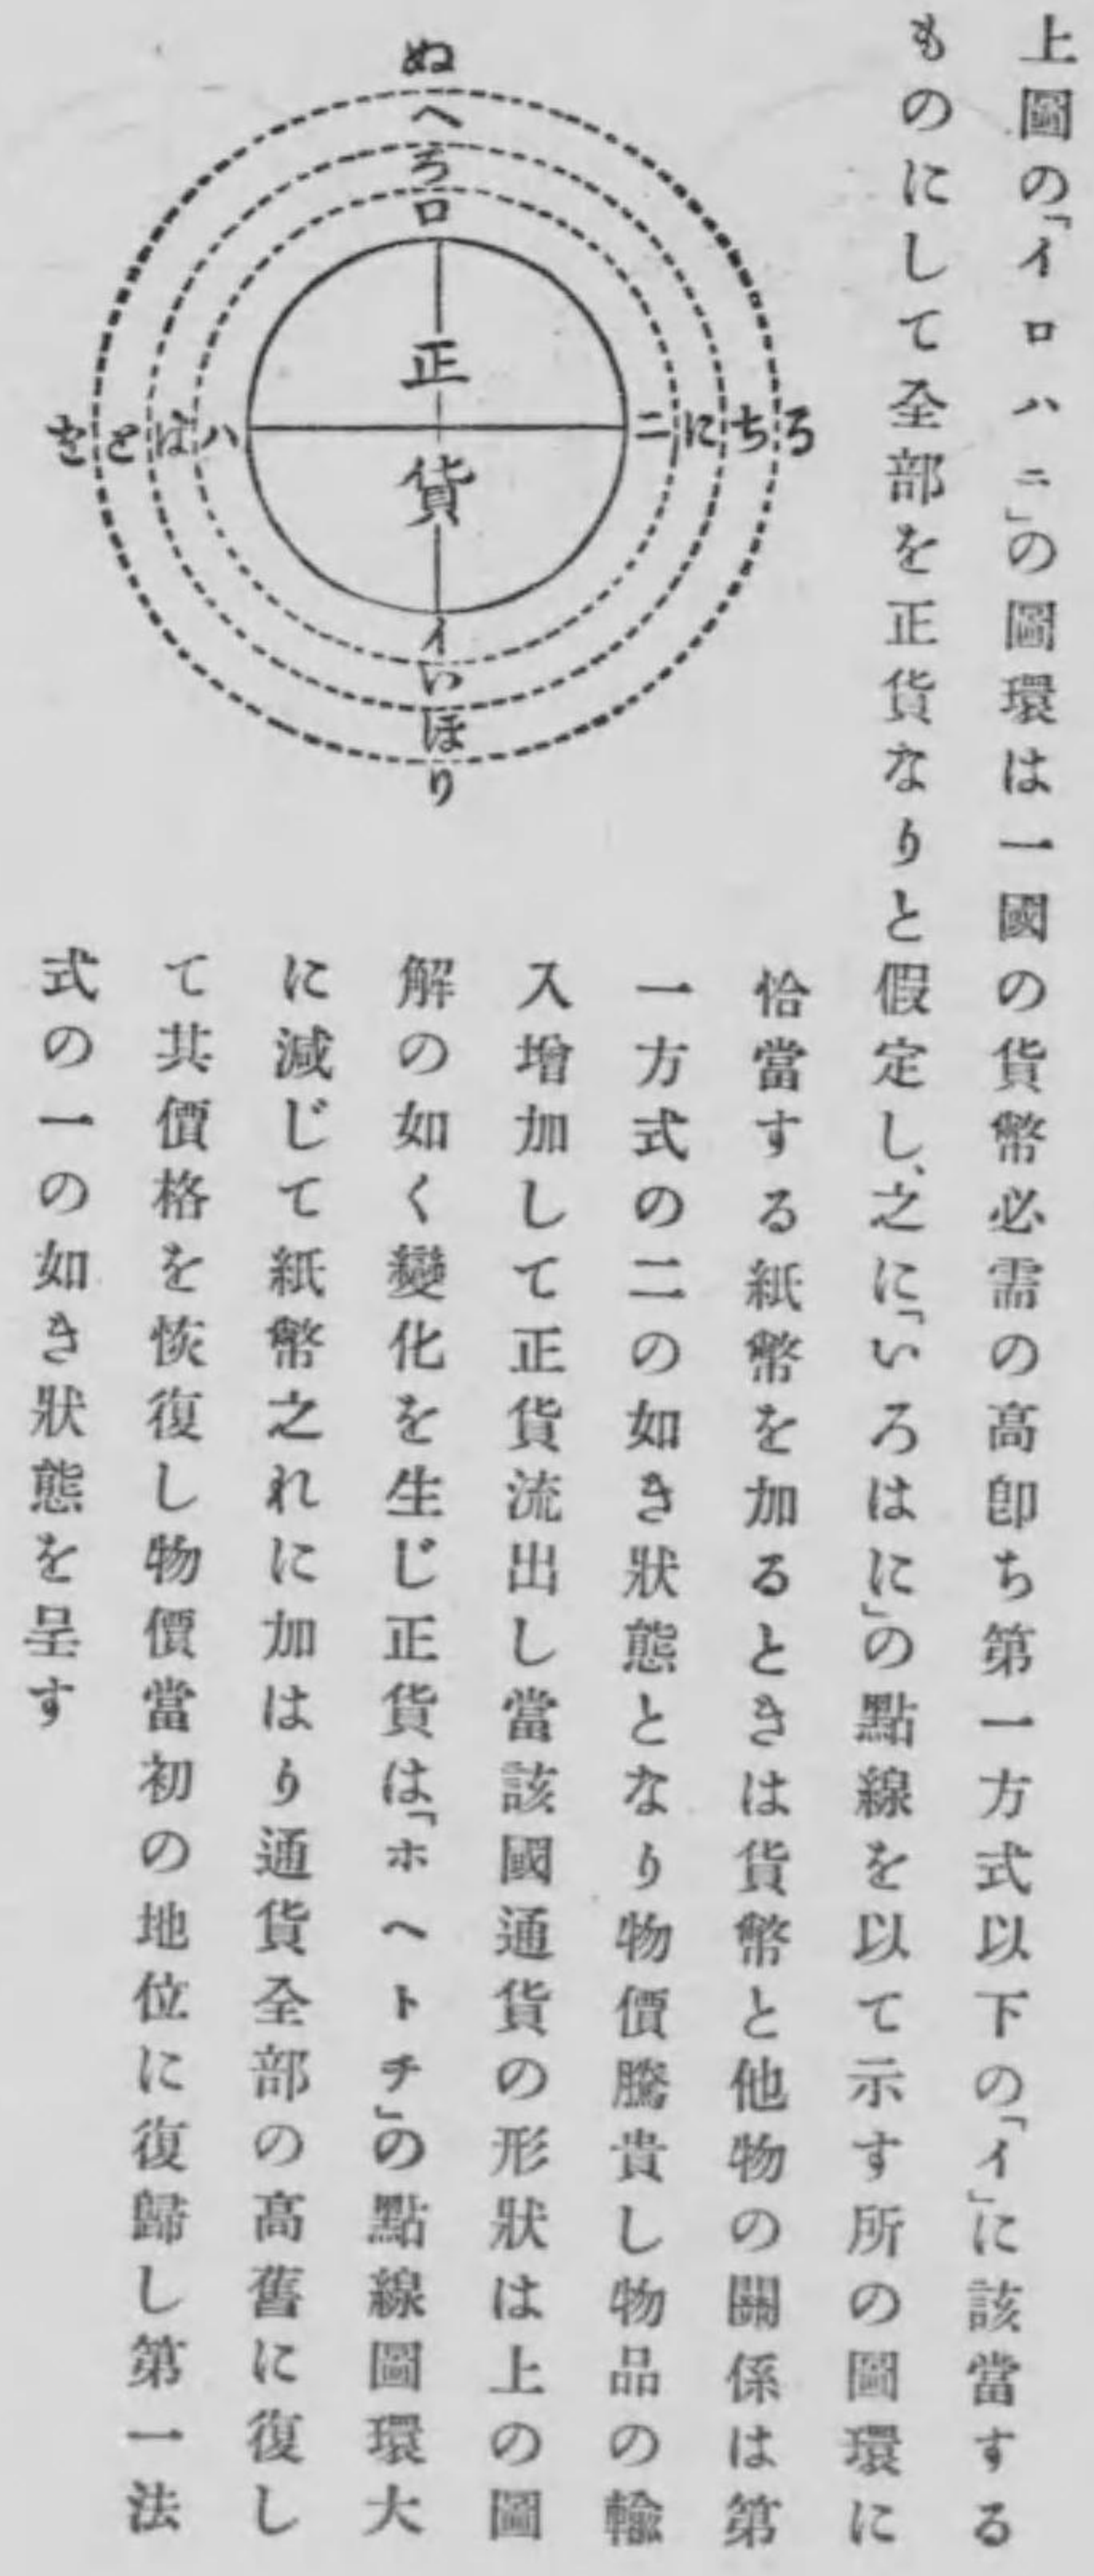 上圖の「イロハニ」の圖環は一國の貨幣必需の高卽ち第一方式以下の「イ」に該當する
ものにして全部を正貨なりと假定し、之に「いろはに」の點線を以て示す所の圖環に
恰當する紙幣を加るときは貨幣と他物の關係は第
一方式の二の如き狀態となり物價騰貴し物品の輸
入增加して正貨流出し當該國通貨の形狀は上の圖
解の如く變化を生じ正貨は「ホヘトチ」の點線圖環大
に減じて紙幣之れに加はり通貨全部の高舊に復し
て其價格を恢復し物價當初の地位に復歸し第一法
式の一の如き狀態を呈す
ぬ
へ
ろ
ロ
正
貨
を と は ハ
ニ に ち る
イ
い
ほ
り